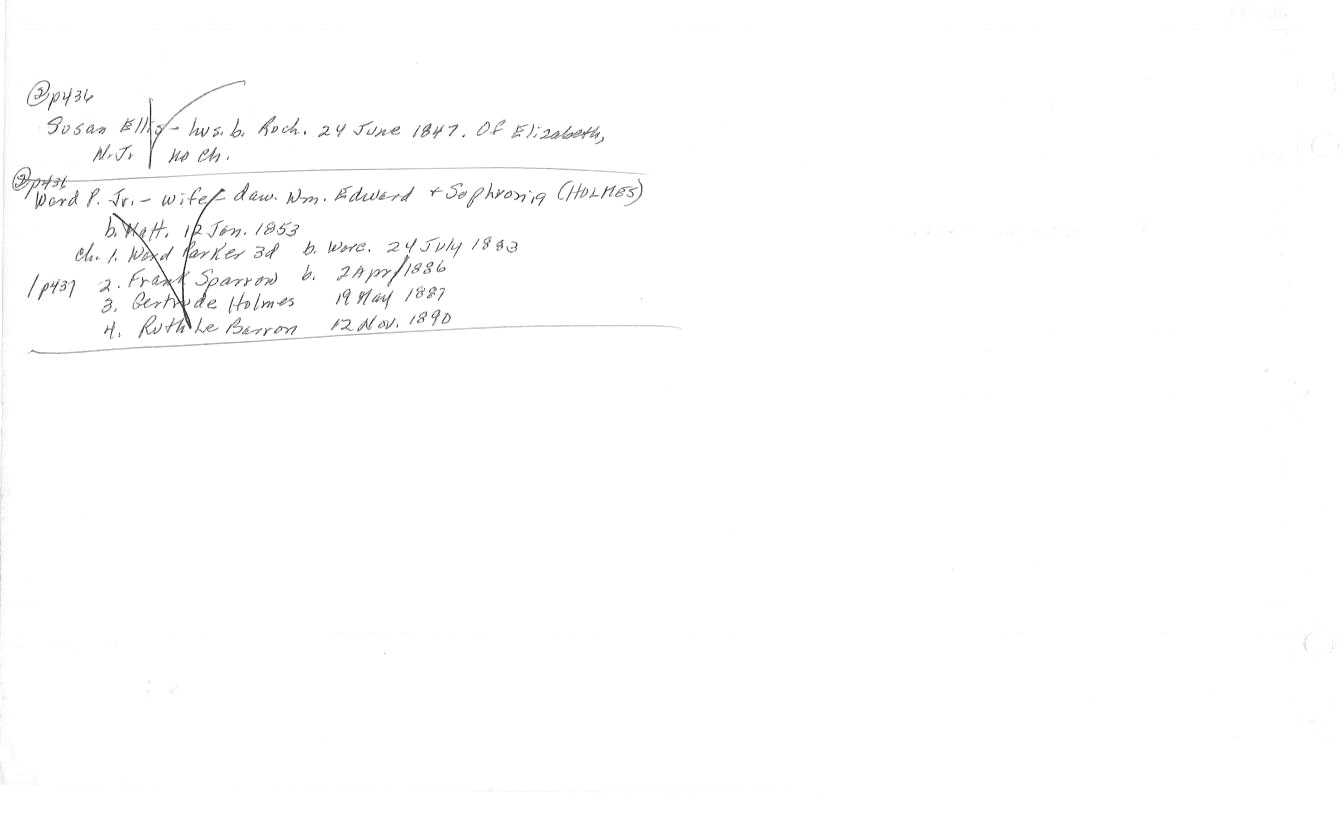 ② p436
Susan Ellis - hus. b. Roch. 24 June 1847. Of Elizabeth,
N.J. no ch.
② p436
Ward P. Jr. - wife - daw. Wm. Edward + Sophronia (HOLMES)
b. Matt. 12 Jan. 1853
ch. 1. Ward Parker 3d b. Worc. 24 July 1883
/p437 2. Frank Sparrow b. 2 Apr/1886
3. Gertrude Holmes 19 May 1887
4. Ruth Le Barron 12 Nov. 1890